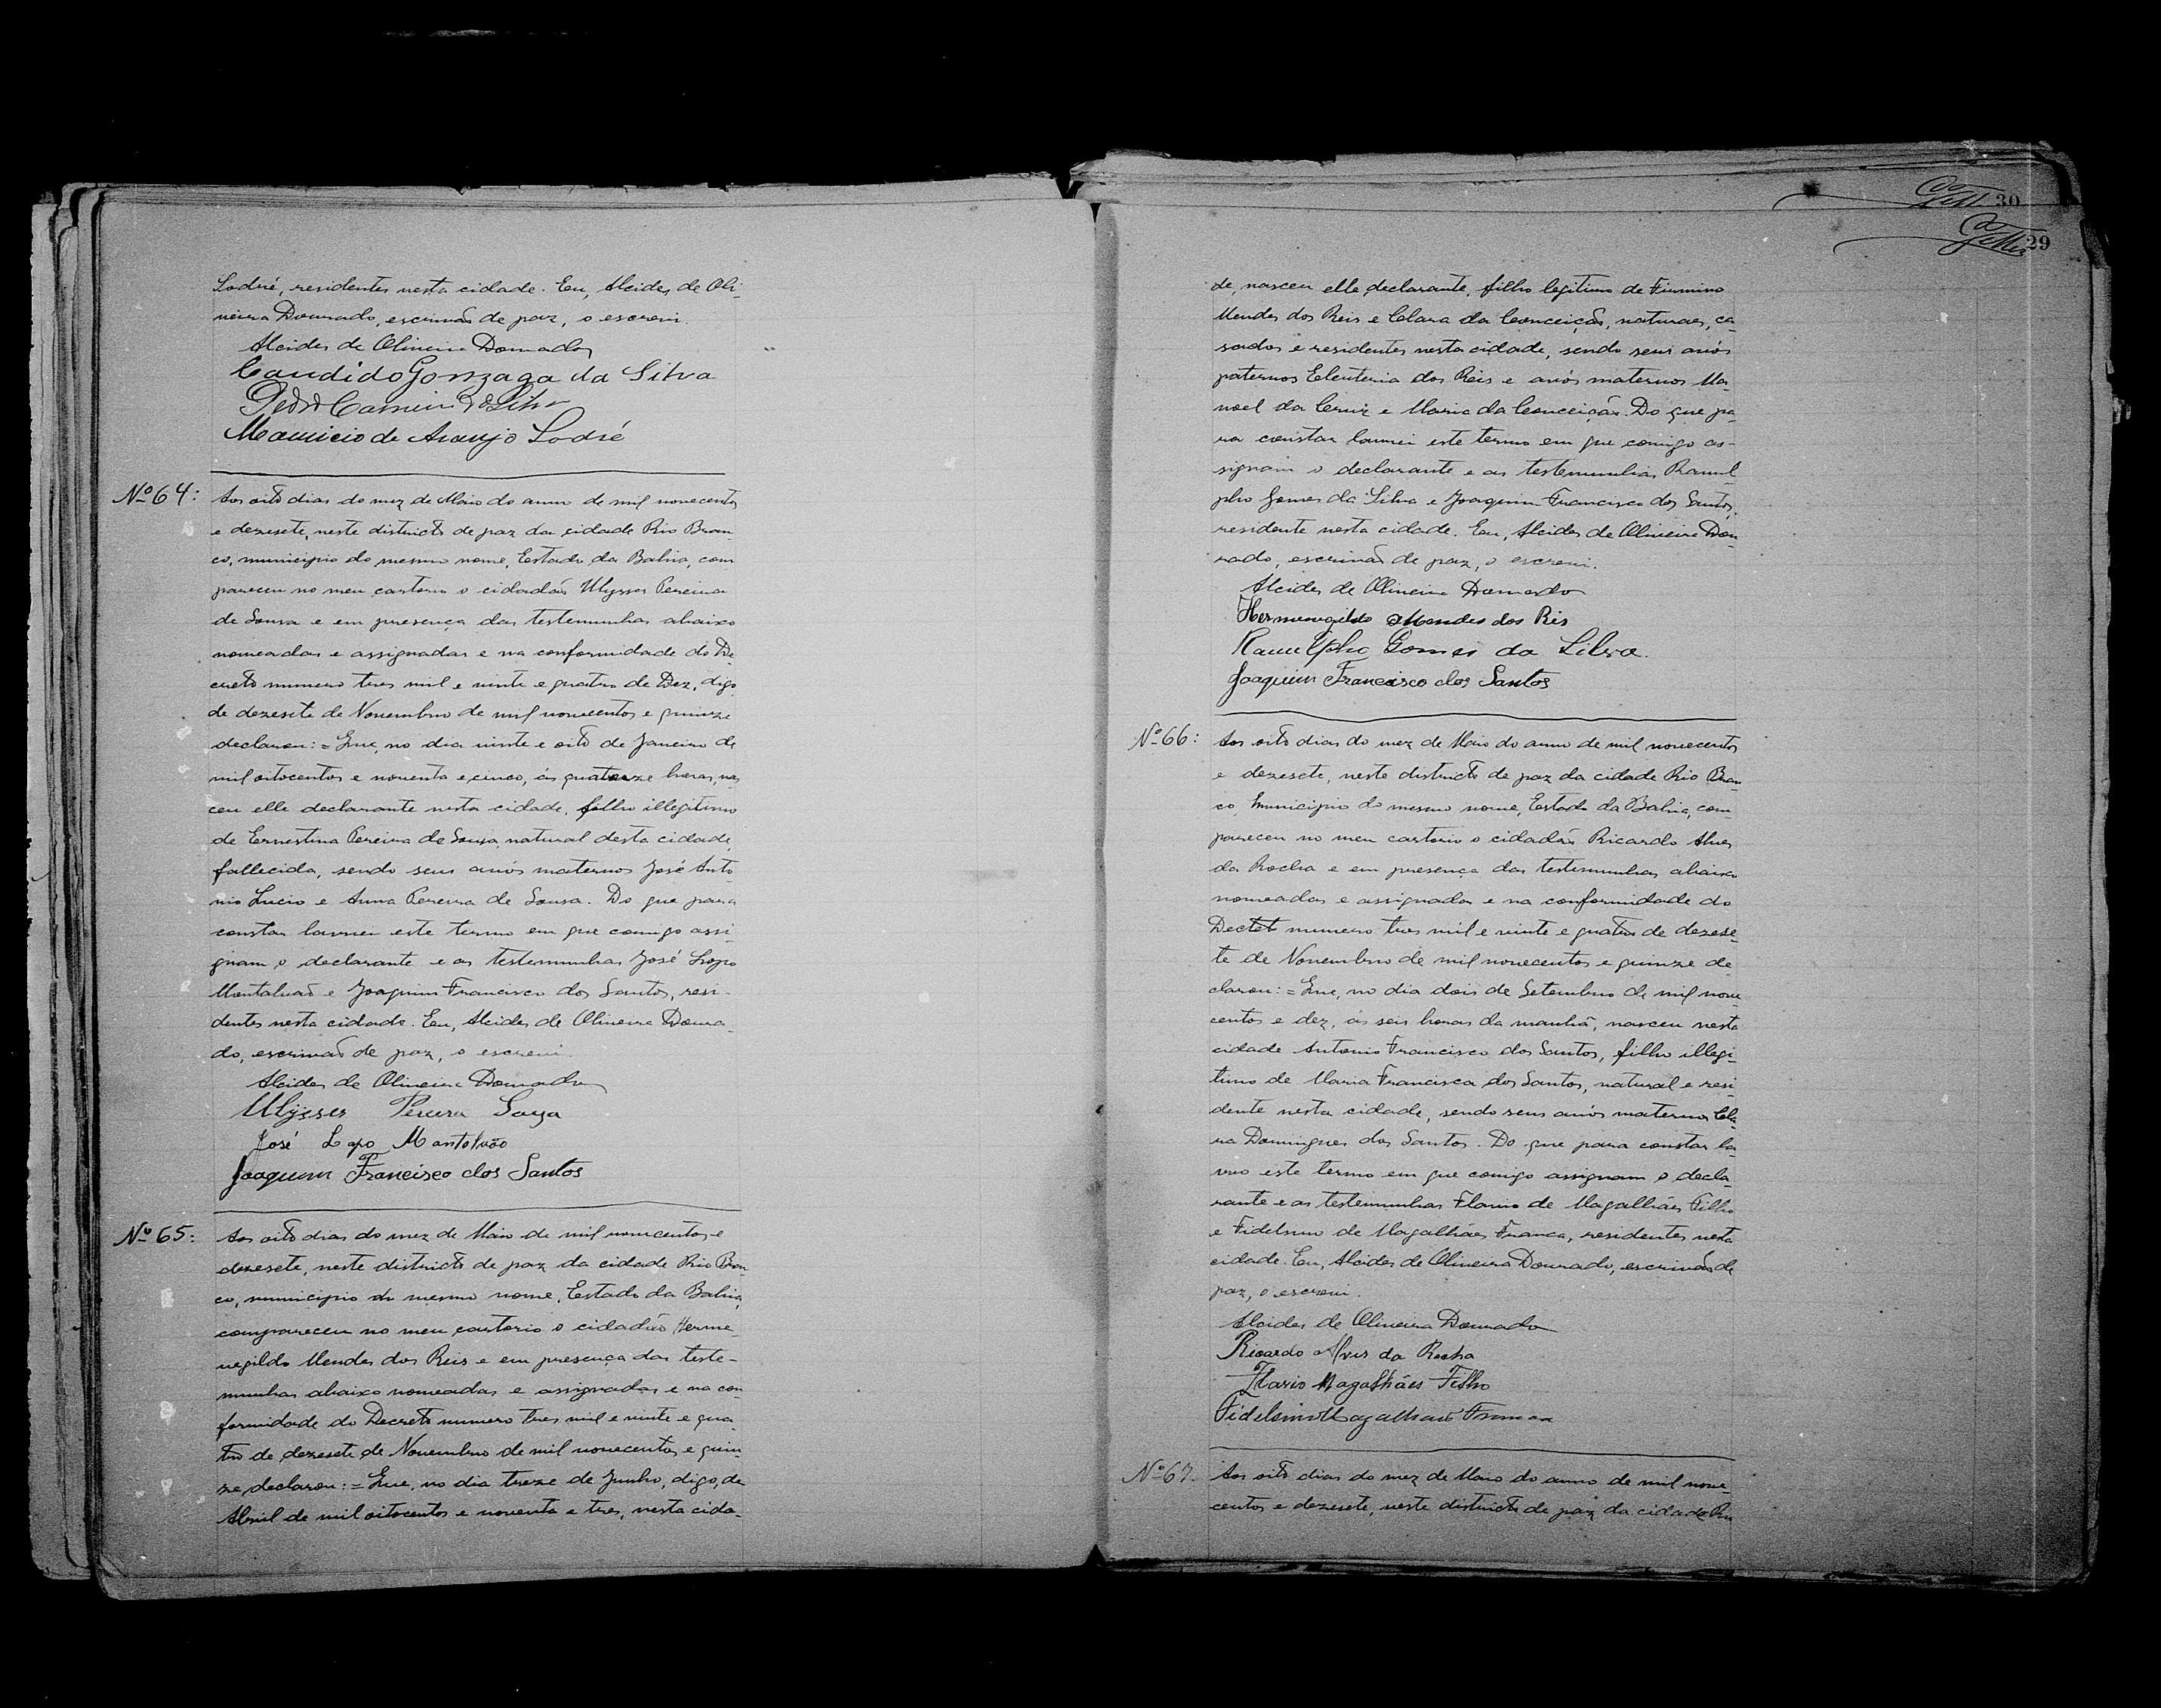 Sodré, residentes nesta cidade. Eu, Alcides de Oli-
veira Dourado, escrivão de paz, o escrevi.
Alcides de Oliveira Dourado
Candido Gonzaga da Silva
Pedro Carneiro da Silva
Mauricio de Araujo Sodré
Nº 64:
Aos oito dias do mez de Maio do anno de mil novecentos
e dezesete, neste districto de paz da cidade Rio Bran
co, municipio do mesmo nome, Estado da Bahia, com
pareceu no meu cartorio o cidadão Ulysses Pereira
de Sousa e em presença das testemunhas abaixo
nomeadas e assignadas e na conformidade do De
creto numero tres mil e vinte e quatro de Dez, digo
de dezesete de Novembro de mil novecentos e quinze
declarou: = Que, no dia vinte e oito de Janeiro de
mil oitocentos e noventa e cinco, ás quatorze horas, nas
ceu elle declarante nesta cidade, filho illegitimo
de Ernestina Pereira de Sousa, natural desta cidade,
fallecida, sendo seus avós maternos José Anto
nio Lucio e Anna Pereira de Sousa. Do que para
constar lavrei este termo em que comigo assi-
gnam o declarante e as testemunhas José Lopo
Montalvão e Joaquim Francisco dos Santos, resi-
dentes nesta cidade. Eu, Alcides de Oliveira Doura-
do, escrivão de paz, o escrevi
Alcides de Oliveira Dourado
Ulysses Pereira Souza
José Lopo Montalvão
Joaquim Francisco dos Santos
Nº 65:
Aos oito dias do mez de Maio de mil novecentos e
dezesete, neste districto de paz da cidade Rio Bran-
co, municipio do mesmo nome, Estado da Bahia,
compareceu no meu cartorio o cidadão Herme-
negildo Mendes dos Reis e em presença das teste-
munhas abaixo nomeadas e assignadas e na con
formidade do Decreto numero tres mil e vinte e qua
tro de dezesete de Novembro de mil novecentos e quin
ze, declarou: = Que, no dia treze de Junho, digo, de
Abril de mil oitocentos e noventa e tres, nesta cida-
30
29
de, nasceu elle declarante, filho legitimo de Firmino
Mendes dos Reis e Clara da Conceição, naturaes, ca
sados e residentes nesta cidade, sendo seus avós
paternos Eleuteria dos Reis e avós maternos Ma-
noel da Cruz e Maria da Conceição. Do que pa
ra constar lavrei este termo em que comigo as-
signam o declarante e as testemunhas Ranul
pho Gomes da Silva e Joaquim Francisco dos Santos,
residente nesta cidade. Eu, Alcides de Oliveira Dou-
rado, escrivão de paz, o escrevi.
Alcides de Oliveira Dourado
Hermenegildo Mendes dos Reis
Ranulpho Gomes da Silva.
Joaquim Francisco dos Santos
Nº 66:
Aos oito dias do mez de Maio do anno de mil novecentos
e dezesete, neste districto de paz da cidade Rio Bran
co, municipio do mesmo nome, Estado da Bahia, com
pareceu no meu cartorio o cidadão Ricardo Alves
da Rocha e em presença das testemunhas abaixo
nomeadas e assignadas e na conformidade do
Dectet numero tres mil e vinte e quatro de dezese-
te de Novembro de mil novecentos e quinze de
clarou: = Que, no dia dois de Setembro de mil nove
centos e dez, ás seis horas da manhã, nasceu nesta
cidade Antonio Francisco dos Santos, filho illegi-
timo de Maria Francisca dos Santos, natural e resi
dente nesta cidade, sendo seus avós maternos Cla-
ra Domingues dos Santos. Do que para constar la-
vro este termo em que comigo assignam o decla-
rante e as testemunhas Flavio de Magalhães Filho
e Fidelsino de Magalhães Franca, residentes nesta
cidade. Eu, Alcides de Oliveira Dourado, escrivão de
paz, o escrevi.
Alcides de Oliveira Dourado
Ricardo Alves da Rocha
Flavio Magalhães Filho
Fidelsino Magalhães Franca
Nº 67.
Aos oito dias do mez de Maio do anno de mil nove-
centos e dezesete, neste districto de paz da cidade Rio